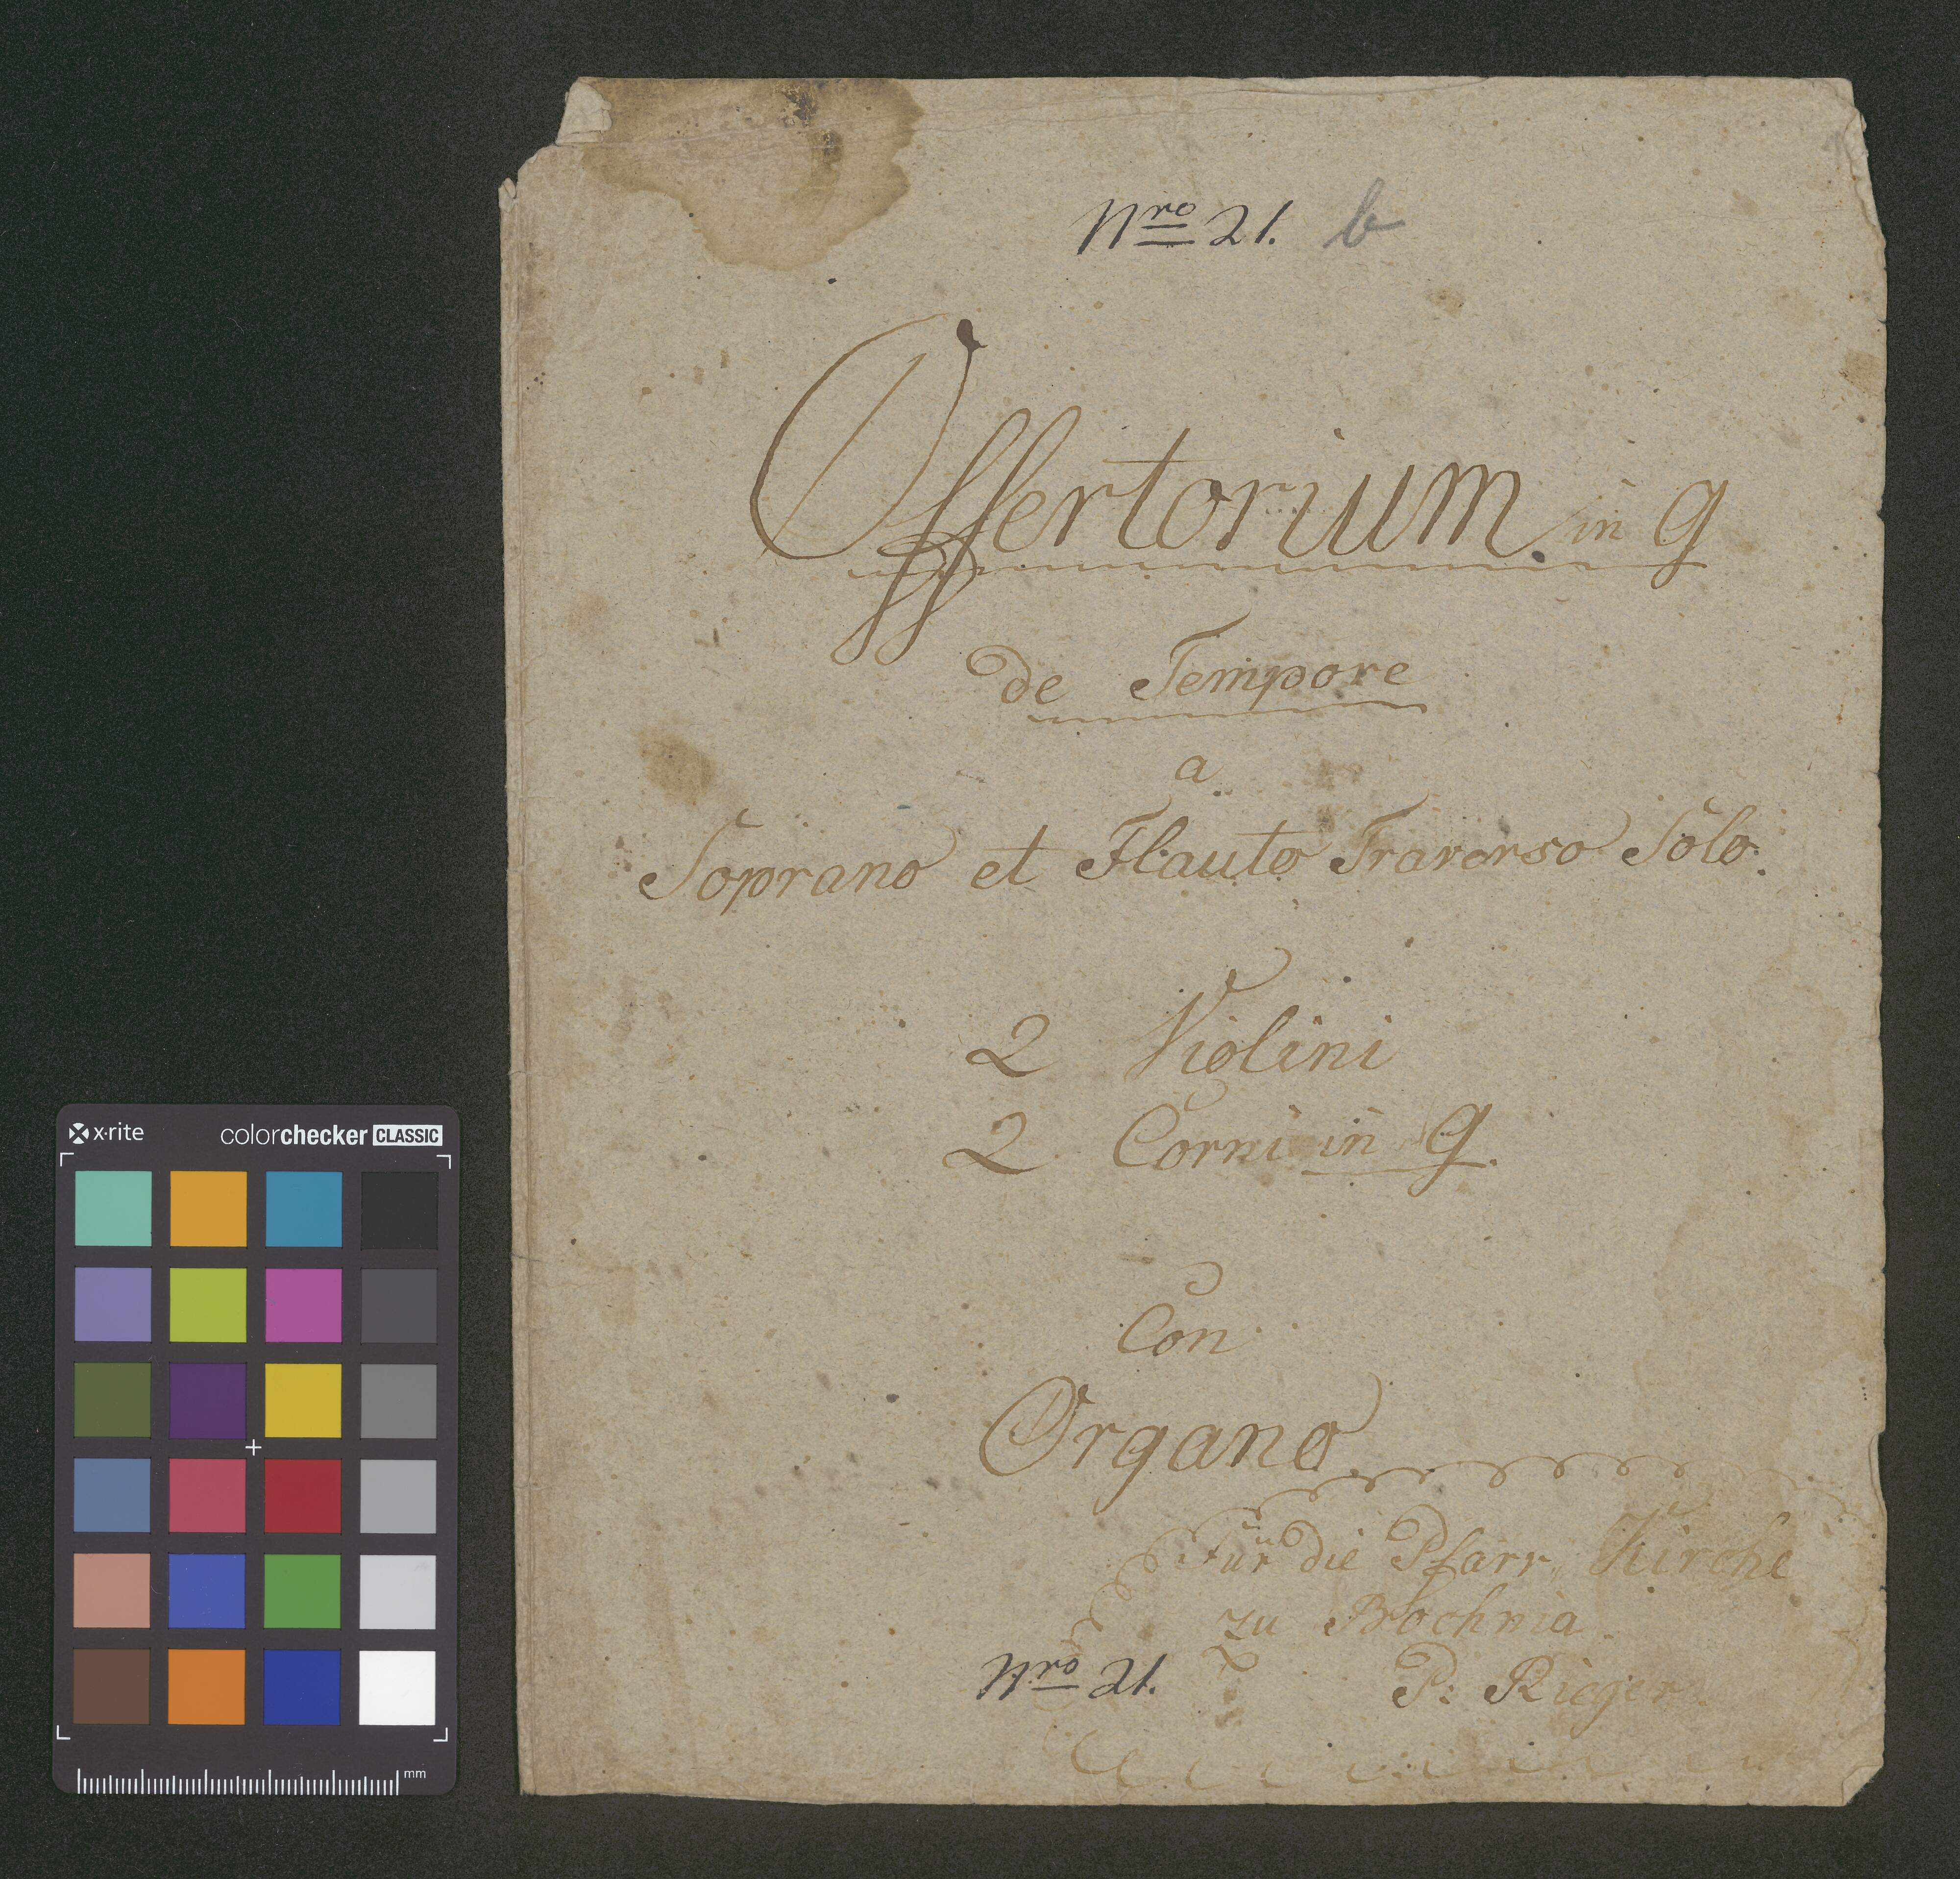 Nro 21. b
Offertorium in g
de Tempore
a
Soprano et Flauto Traverso Solo.
2 Violini
2 Corni in g.
Con
Organo
Für die Pfarr Kirche
zu Bochnia
Nro 21.
P: Rieger
x·rite
colorchecker CLASSIC
mm